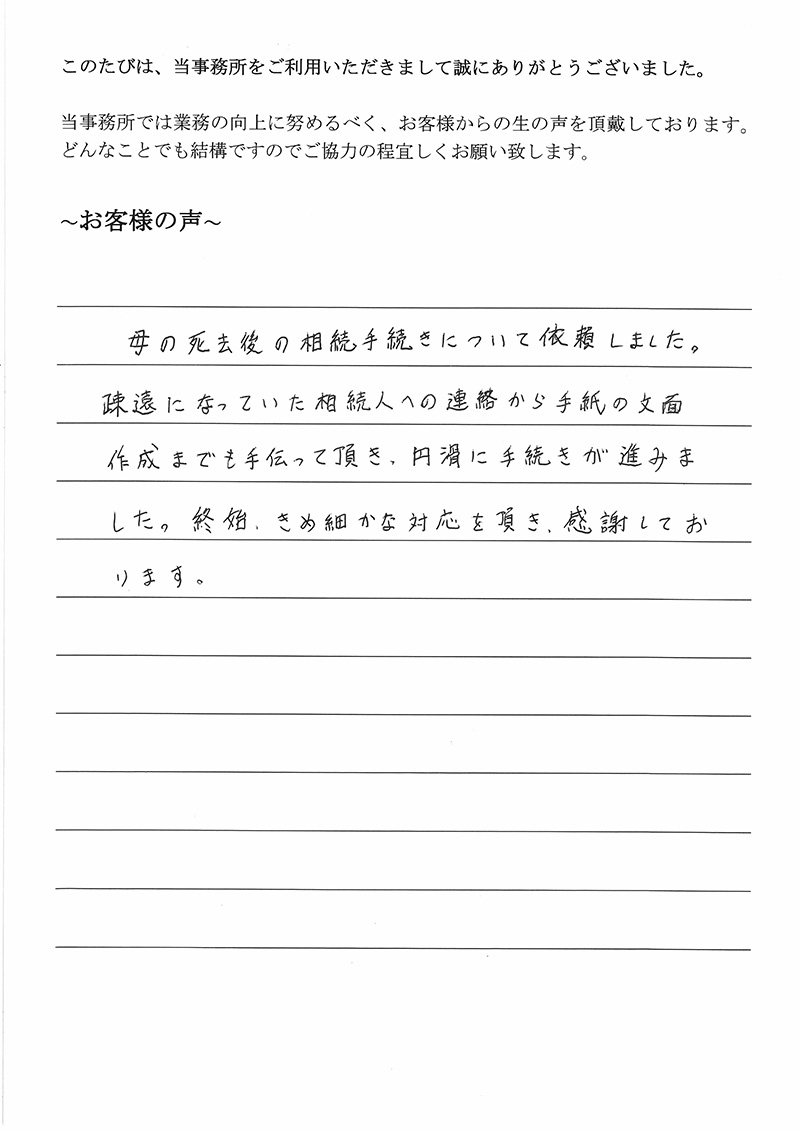 このたびは、当事務所をご利用いただきまして誠にありがとうございました。
当事務所では業務の向上に努めるべく、お客様からの生の声を頂戴しております。
どんなことでも結構ですのでご協力の程宜しくお願い致します。
～お客様の声～
母の死去後の相続手続きについて依頼しました。
疎遠になっていた相続人への連絡から手紙の文面
作成までも手伝って頂き、円滑に手続きが進みま
した。終始、きめ細かな対応を頂き、感謝してお
ります。